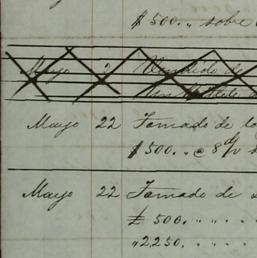 $ 500.,, sobre
Mayo 2 Vendido de
Mayo 22 Tomado de
$500.,, @ 8 d/v
Mayo 22 Tomado de
£ 500. ,, ,, ,,
" 2,250. ,, ,, ,,